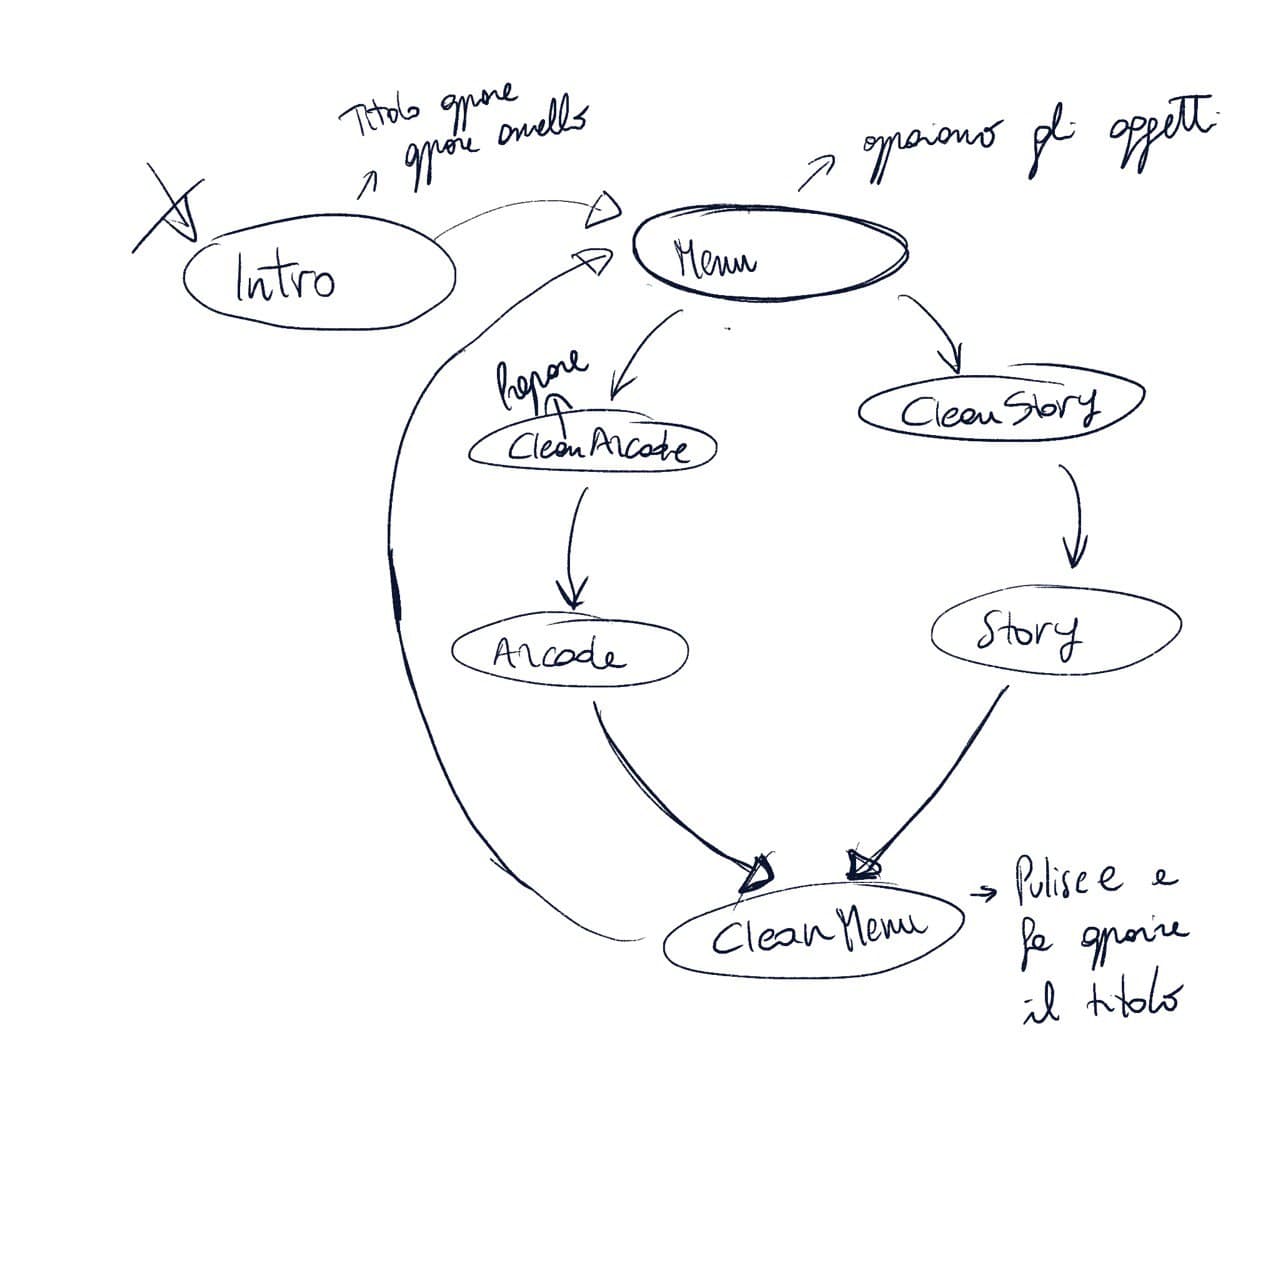 Titolo appare
appare anello
appaiono gli oggetti
Intro
Menu
Prepare
CleanArcade
CleanStory
Arcade
Story
CleanMenu
Pulisce e
fa apparire
il titolo